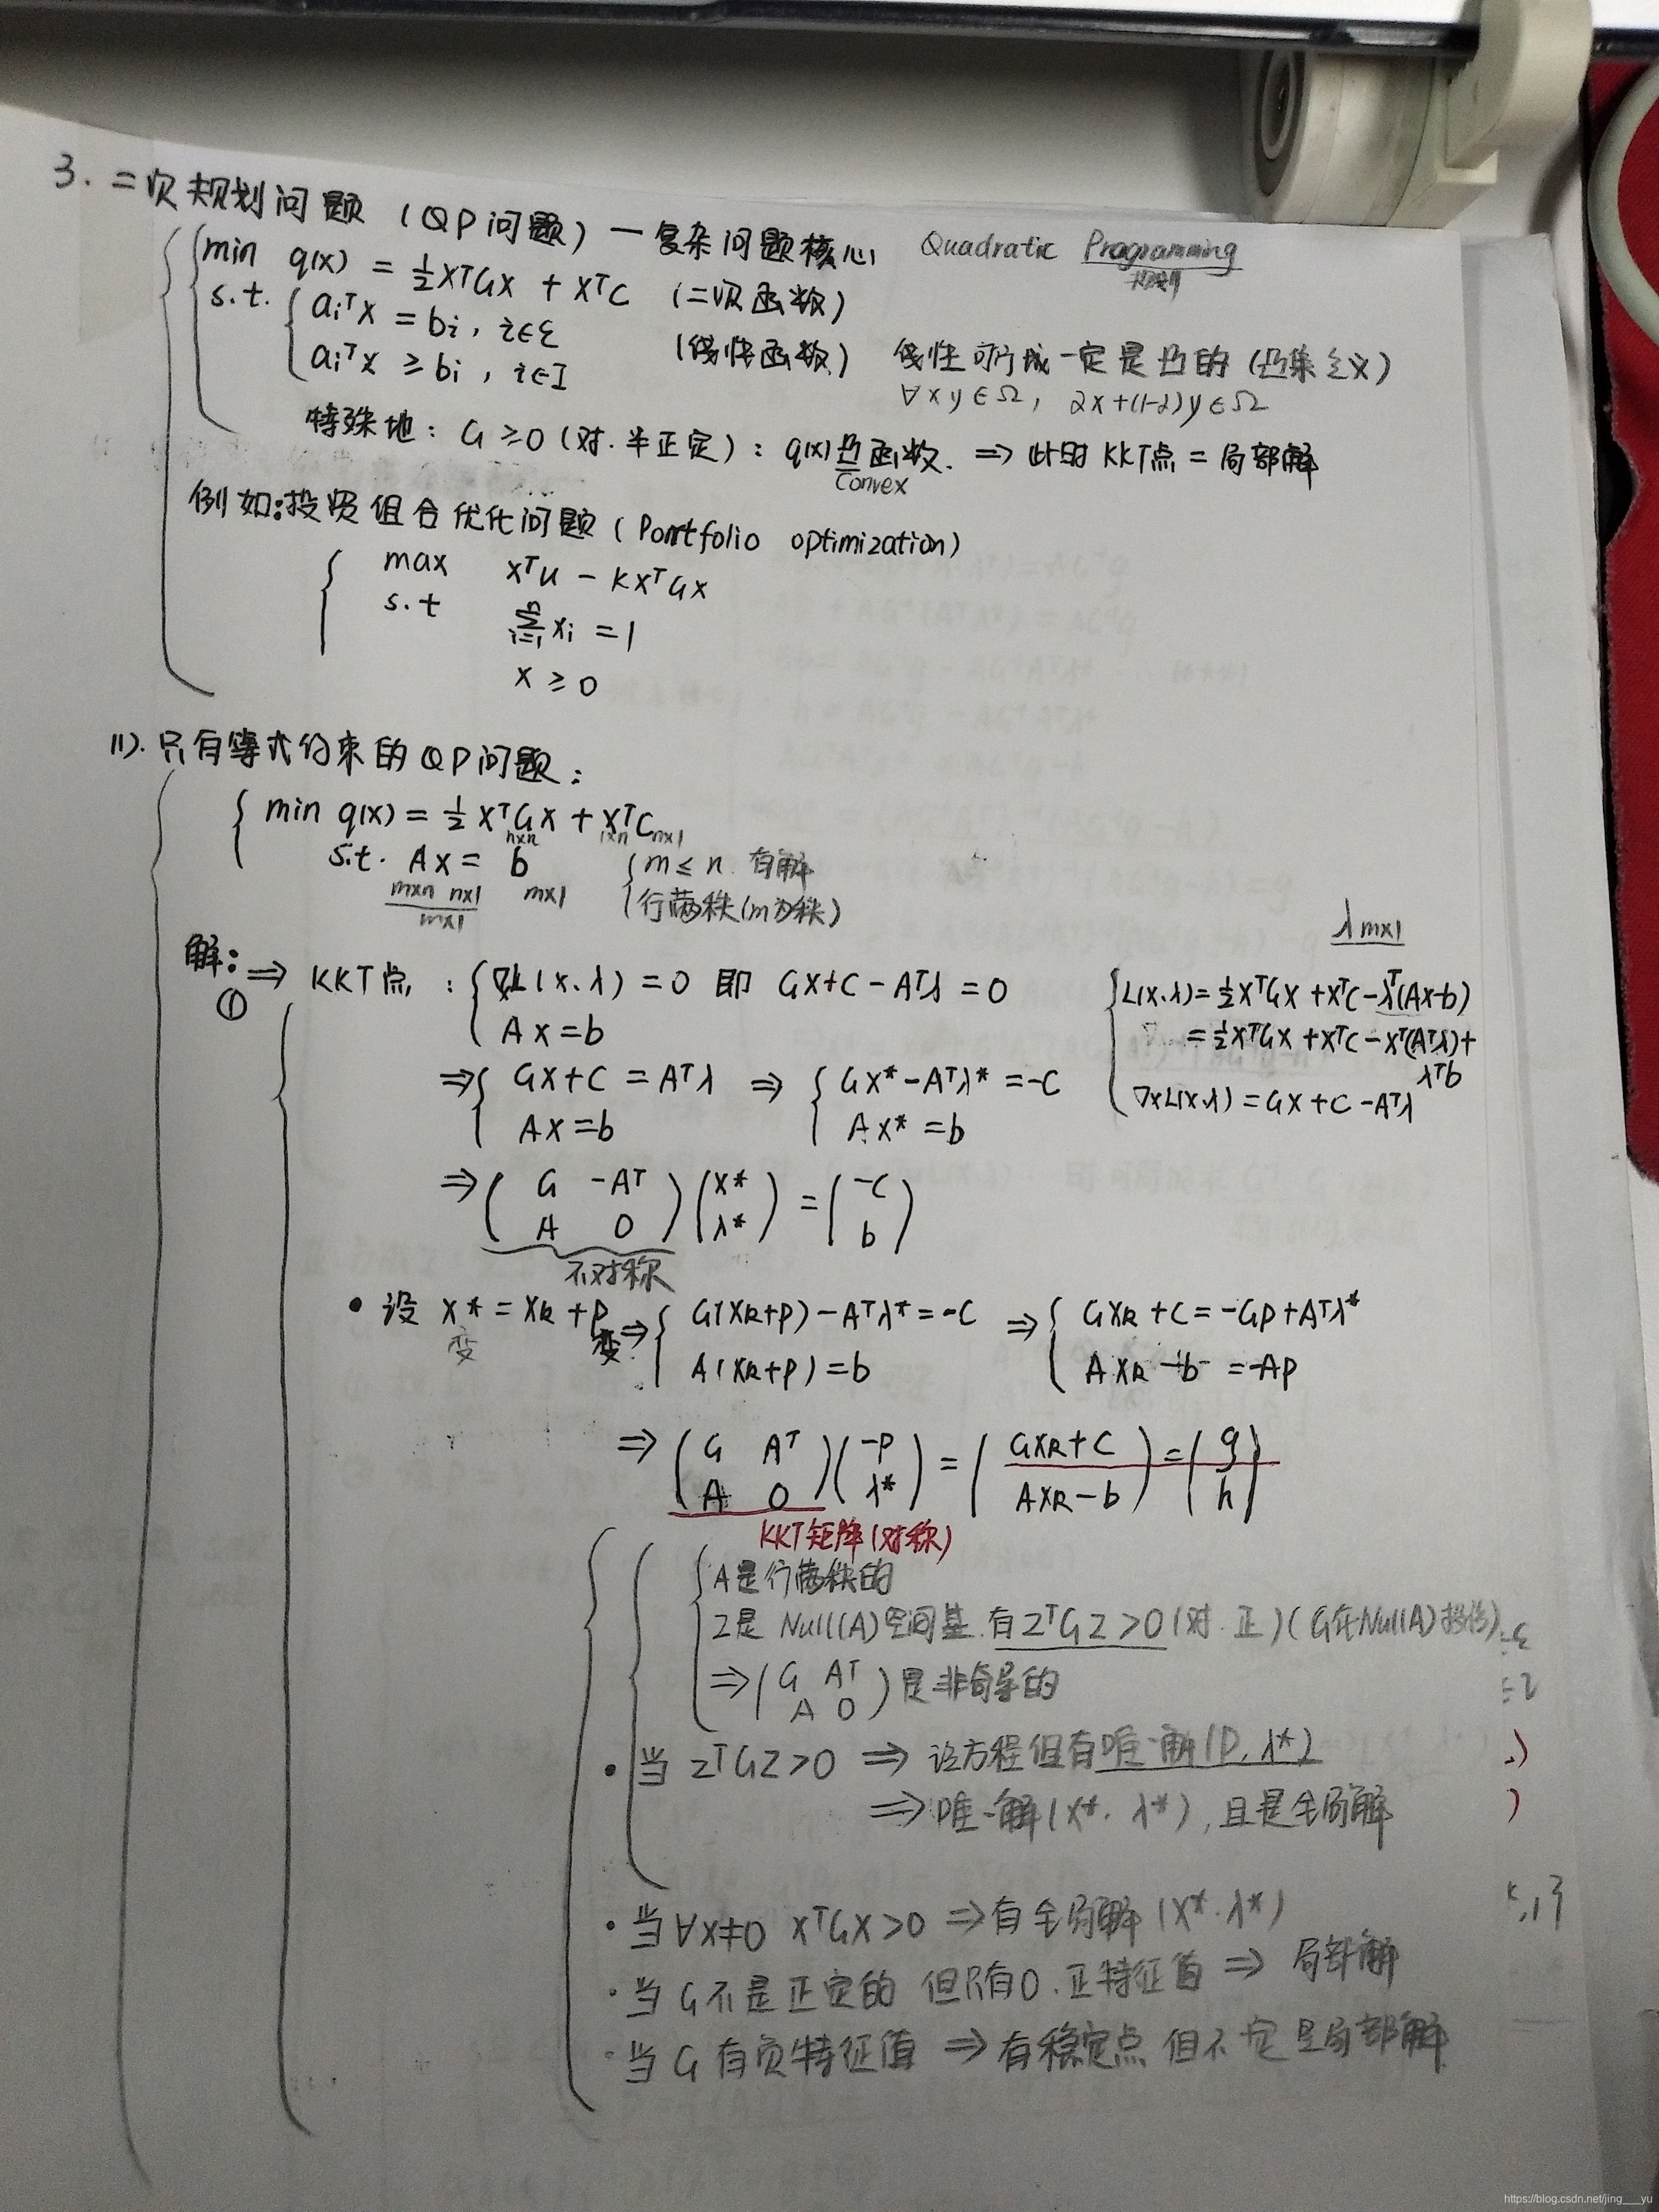 3. 二次规划问题（QP问题）— 复杂问题核心 Quadratic Programming
规划
min q(x) = ½xᵀGx + xᵀc （二次函数）
s.t. { aᵢᵀx = bᵢ, i∈ε
aᵢᵀx ≥ bᵢ, i∈I （线性函数） 线性可行域一定是凸的（凸集定义）
∀x y∈Ω, αx+(1-α)y∈Ω
特殊地：G ≥ 0（对.半正定）：q(x)凸函数. ⇒ 此时 KKT点 = 局部解
Convex
例如:投资组合优化问题（Portfolio optimization）
max xᵀu - kxᵀGx
s.t ∑ᵢ₌₁ⁿ xᵢ = 1
x ≥ 0
(1). 只有等式约束的QP问题：
min q(x) = ½ xᵀGx + xᵀc
n×n 1×n n×1
s.t. Ax = b { m ≤ n. 有解
m×n n×1 m×1 行满秩(m为秩)
m×1
λ m×1
解: ⇒ KKT点 : { ∇ₓL(x.λ) = 0 即 Gx+c-Aᵀλ = 0
① Ax = b
L(x.λ) = ½xᵀGx + xᵀc - λᵀ(Ax-b)
= ½xᵀGx + xᵀc - xᵀ(Aᵀλ) +
λᵀb
∇xL(x.λ) = Gx + c - Aᵀλ
⇒ { Gx+c = Aᵀλ ⇒ { Gx* - Aᵀλ* = -c
Ax = b Ax* = b
⇒ ( G -Aᵀ ) ( x* ) = ( -c )
( A 0 ) ( λ* ) ( b )
不对称
• 设 x* = xₖ + p ⇒ { G(xₖ+p) - Aᵀλ* = -c ⇒ { Gxₖ + c = -Gp + Aᵀλ*
变 变 A(xₖ+p) = b Axₖ - b = -Ap
⇒ ( G Aᵀ ) ( -p ) = ( Gxₖ+c ) = ( g )
( A 0 ) ( λ* ) ( Axₖ-b ) ( h )
KKT矩阵(对称)
A是行满秩的
Z是 Null(A)空间基. 有 ZᵀGZ > 0 (对.正) (G在Null(A)投影)
⇒ ( G Aᵀ ) 是非奇异的
( A 0 )
• 当 ZᵀGZ > 0 ⇒ 该方程组有唯一解(p, λ*)
⇒ 唯一解(x*. λ*), 且是全局解
• 当∀x≠0 xᵀGx > 0 ⇒ 有全局解 (x*.λ*)
• 当G不是正定的 但只有0.正特征值 ⇒ 局部解
• 当G有负特征值 ⇒ 有稳定点 但不一定是局部解
https://blog.csdn.net/jing___yu